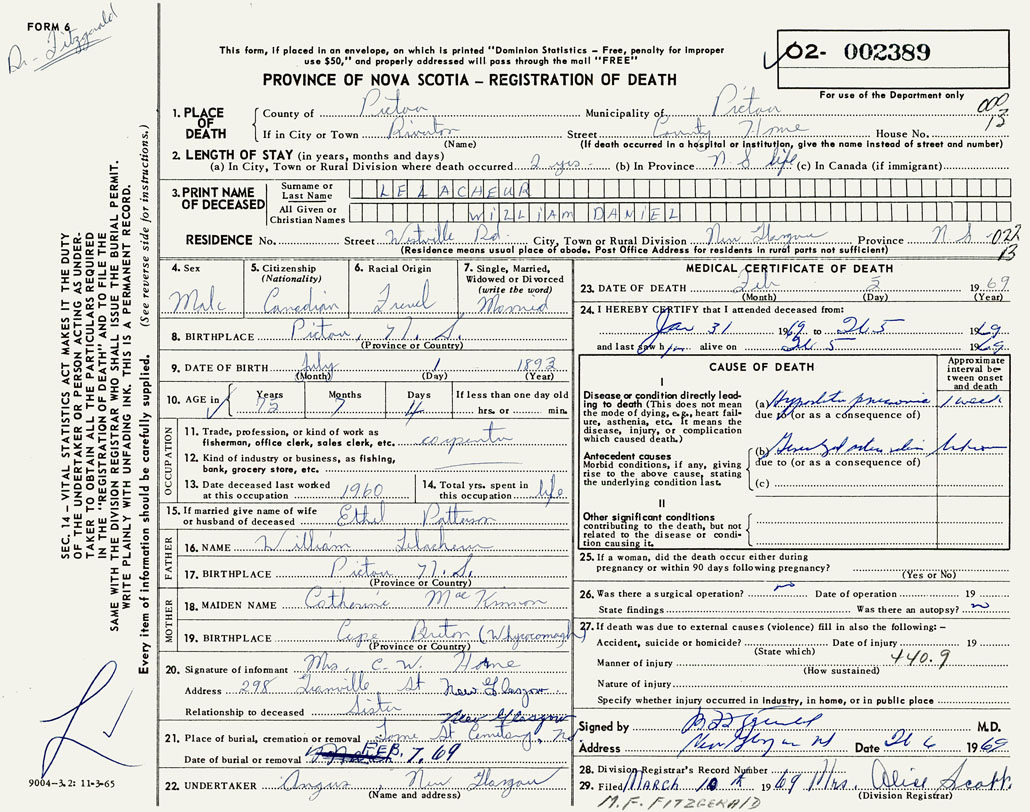 FORM 6
Dr. Fitzgerald
This form, if placed in an envelope, on which is printed "Dominion Statistics – Free, penalty for improper
use $50," and properly addressed will pass through the mail "FREE"
02- 002389
PROVINCE OF NOVA SCOTIA – REGISTRATION OF DEATH
For use of the Department only
000
13
1. PLACE OF DEATH
County of Pictou Municipality of Pictou
If in City or Town Riverton Street County Home House No.
(Name) (If death occurred in a hospital or institution, give the name instead of street and number)
2. LENGTH OF STAY (in years, months and days)
(a) In City, Town or Rural Division where death occurred 2 yrs. (b) In Province N S life (c) In Canada (if immigrant)
3. PRINT NAME OF DECEASED
Surname or Last Name LELACHEUR
All Given or Christian Names WILLIAM DANIEL
RESIDENCE No. Street Westville Rd. City, Town or Rural Division New Glasgow Province N S -022
(Residence means usual place of abode. Post Office Address for residents in rural parts not sufficient) 13
4. Sex Male
5. Citizenship (Nationality) Canadian
6. Racial Origin French
7. Single, Married, Widowed or Divorced (write the word) Married
8. BIRTHPLACE Pictou, N. S.
(Province or Country)
9. DATE OF BIRTH July 1 1893
(Month) (Day) (Year)
10. AGE in Years 75 Months 7 Days 4 If less than one day old hrs. or min.
OCCUPATION
11. Trade, profession, or kind of work as fisherman, office clerk, sales clerk, etc. carpenter
12. Kind of industry or business, as fishing, bank, grocery store, etc.
13. Date deceased last worked at this occupation 1960
14. Total yrs. spent in this occupation life
15. If married give name of wife or husband of deceased Ethel Patterson
FATHER
16. NAME William Lelacheur
17. BIRTHPLACE Pictou N. S.
(Province or Country)
MOTHER
18. MAIDEN NAME Catherine MacKinnon
19. BIRTHPLACE Cape Breton (Whycocomagh)
(Province or Country)
20. Signature of informant Mrs. C. W. Horne
Address 298 St New Glasgow
Relationship to deceased Sister
New Glasgow
21. Place of burial, cremation or removal St Cemetery,
Date of burial or removal FEB. 7, 69
22. UNDERTAKER Angus, New Glasgow
(Name and address)
MEDICAL CERTIFICATE OF DEATH
23. DATE OF DEATH Feb 5 1969
(Month) (Day) (Year)
24. I HEREBY CERTIFY that I attended deceased from:
Jan 31 1969 to Feb 5 1969
and last saw him alive on Feb 5 1969
CAUSE OF DEATH
Approximate interval between onset and death
I
Disease or condition directly leading to death (This does not mean the mode of dying, e.g., heart failure, asthenia, etc. It means the disease, injury, or complication which caused death.)
(a) Hypostatic pneumonia 1 week
due to (or as a consequence of)
Antecedent causes
Morbid conditions, if any, giving rise to the above cause, stating the underlying condition last.
(b)
due to (or as a consequence of)
(c)
II
Other significant conditions contributing to the death, but not related to the disease or condition causing it.
25. If a woman, did the death occur either during pregnancy or within 90 days following pregnancy?
(Yes or No)
26. Was there a surgical operation? no Date of operation 19
State findings Was there an autopsy? no
27. If death was due to external causes (violence) fill in also the following: –
Accident, suicide or homicide? Date of injury 19
(State which)
Manner of injury 440.9
(How sustained)
Nature of injury
Specify whether injury occurred in industry, in home, or in public place
Signed by M.D.
Address New Glasgow NS Date Feb 6 1969
28. Division Registrar's Record Number
29. Filed MARCH 10th 1969 Mrs. Alice Scott
(Division Registrar)
M.F. FITZGERALD
SEC. 14 – VITAL STATISTICS ACT MAKES IT THE DUTY
OF THE UNDERTAKER OR PERSON ACTING AS UNDER-
TAKER TO OBTAIN ALL THE PARTICULARS REQUIRED
IN THE "REGISTRATION OF DEATH" AND TO FILE THE
SAME WITH THE DIVISION REGISTRAR WHO SHALL ISSUE THE BURIAL PERMIT.
WRITE PLAINLY WITH UNFADING INK. THIS IS A PERMANENT RECORD.
Every item of information should be carefully supplied. (See reverse side for instructions.)
9004-3.2: 11-3-65